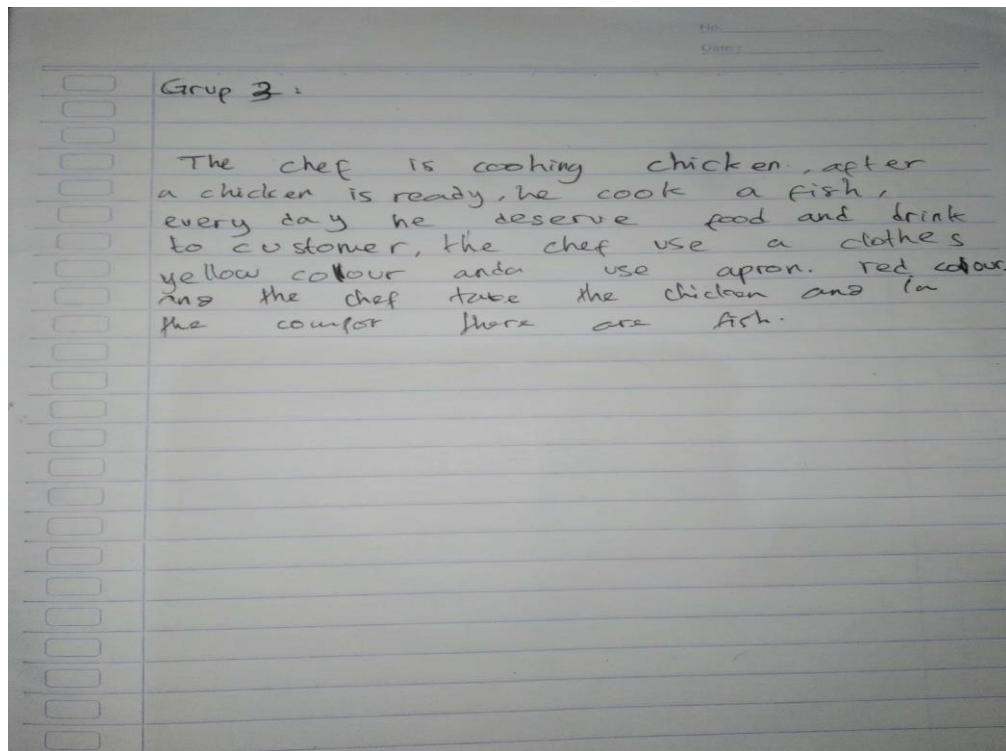 No.
Date :
Grup 3 :
The chef is cooking chicken, after
a chicken is ready, he cook a fish,
every day he deserve food and drink
to customer, the chef use a clothes
yellow colour and use apron. red colour
and the chef take the chicken and in
the compor there are fish.